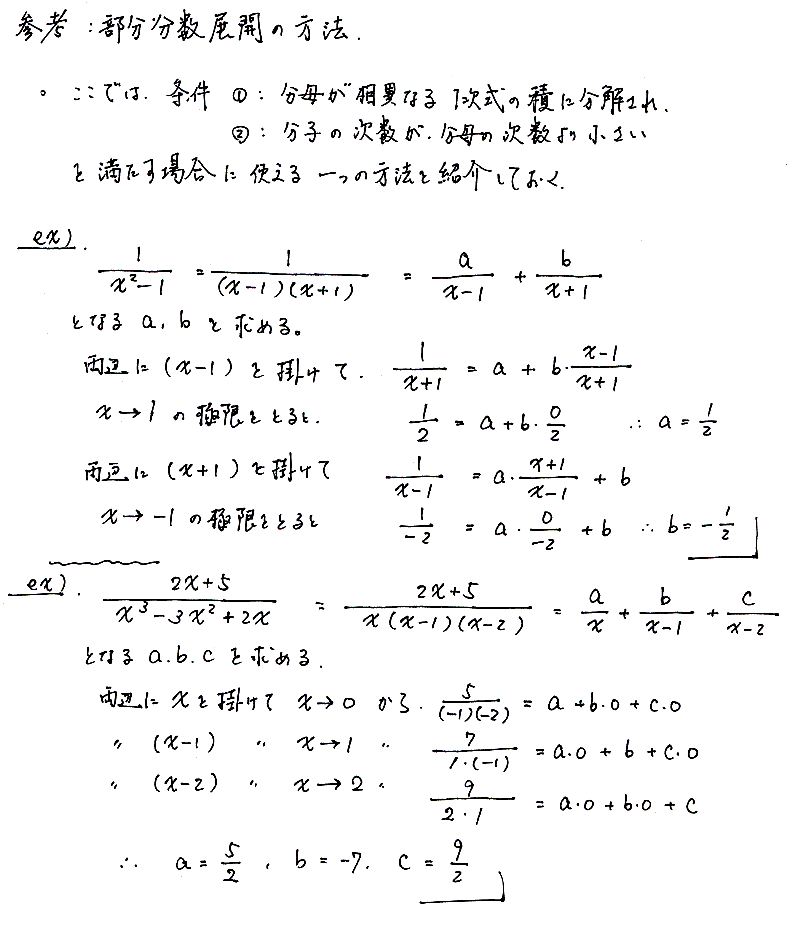 参考：部分分数展開の方法.
。ここでは. 条件 ①：分母が相異なる1次式の積に分解され.
②：分子の次数が. 分母の次数より小さい
を満たす場合に使える一つの方法を紹介しておく.
ex).
1/(x²-1) = 1/((x-1)(x+1)) = a/(x-1) + b/(x+1)
となる a, b を求める。
両辺に (x-1) を掛けて. 1/(x+1) = a + b・(x-1)/(x+1)
x→1 の極限をとると. 1/2 = a+b・0/2 ∴ a = 1/2
両辺に (x+1) を掛けて 1/(x-1) = a・(x+1)/(x-1) + b
x→-1 の極限をとると 1/-2 = a・0/-2 + b ∴ b = -1/2
ex). (2x+5)/(x³-3x²+2x) = (2x+5)/(x(x-1)(x-2)) = a/x + b/(x-1) + c/(x-2)
となる a.b.c を求める.
両辺に x を掛けて x→0 から. 5/((-1)(-2)) = a+b・0+c・0
〃 (x-1) 〃 x→1 〃 7/(1・(-1)) = a・0+b+c・0
〃 (x-2) 〃 x→2 〃 9/(2・1) = a・0+b・0+c
∴ a = 5/2 , b = -7. c = 9/2